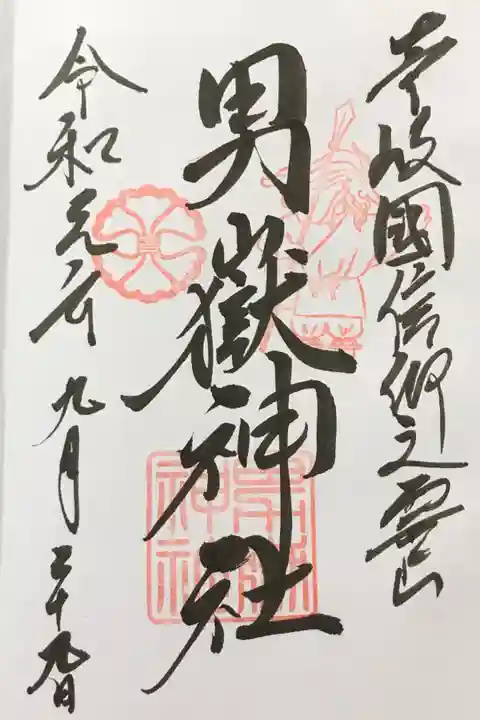 壱岐國信仰之霊山
男嶽神社
令和元年
九月二十九日